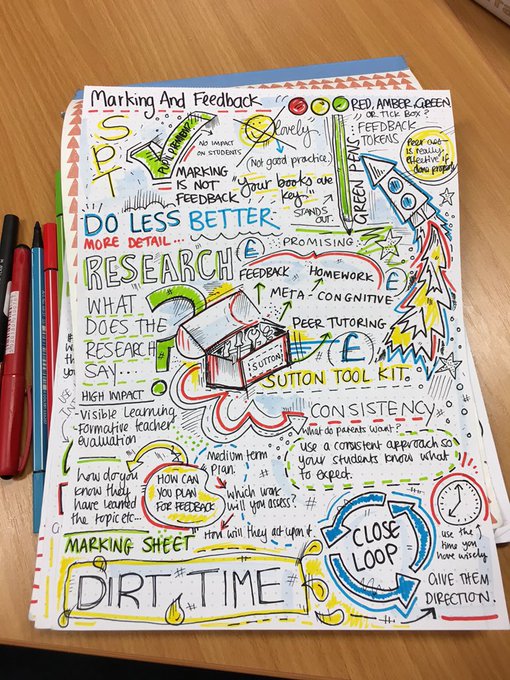 Marking And Feedback
RED, AMBER, GREEN
OR TICK BOX?
FEEDBACK
TOKENS
SPT
PUPIL PREMIUM?
NO IMPACT
ON STUDENTS
MARKING
IS NOT
FEEDBACK
lovely
(Not good practice.)
"Your books are
key!"
STANDS
OUT.
GREEN PENS
Peer ass
is really
effective if
done properly
DO LESS BETTER
MORE DETAIL...
RESEARCH
£ PROMISING
FEEDBACK HOMEWORK £
META-COGNITIVE
PEER TUTORING
£
SUTTON
SUTTON TOOL KIT.
WHAT
DOES THE
RESEARCH
SAY....
?
HIGH IMPACT
-Visible Learning
-Formative teacher
evaluation
CONSISTENCY
What do parents want?
use a consistent approach so
your students know what
to expect.
how do you
know they
have learned
the topic etc...
HOW CAN
YOU PLAN
FOR FEEDBACK
Medium term
plan.
which work
will you assess?
How will they act upon it.
MARKING SHEET
CLOSE
LOOP
use the
time you
have wisely
GIVE THEM
DIRECTION.
DIRT TIME